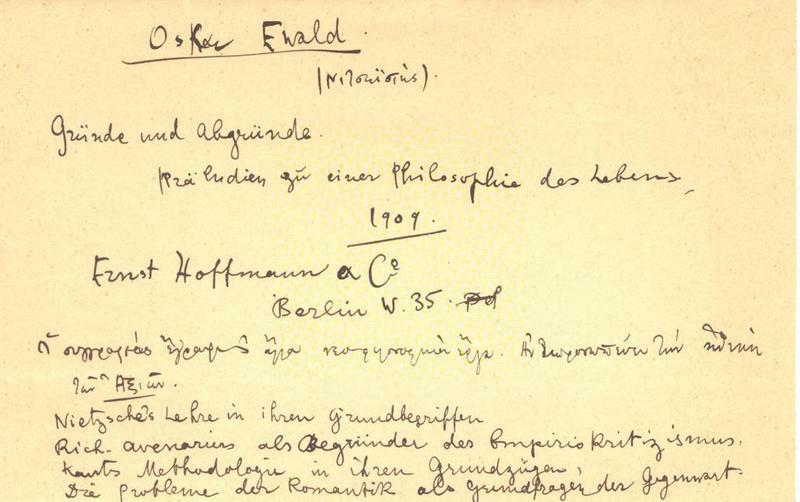 Oskar Ewald.
(Νιτσεϊστής).
Gründe und Abgründe.
Präludien zu einer Philosophie des Lebens,
1909.
Ernst Hoffmann & Cº
Berlin W. 35.
Ὁ συγγραφεὺς ἔγραψε ἄλλα ἔργα. Ἀντιπροσωπεύει τὴν ἠθικὴν
τῶν Ἀξιῶν.
Nietzsche's Lehre in ihren Grundbegriffen
Rich. Avenarius als Begründer des Empiriokritizismus.
Kants Methodologie in ihren Grundzügen,
Die Probleme der Romantik als Grundfragen der Gegenwart.